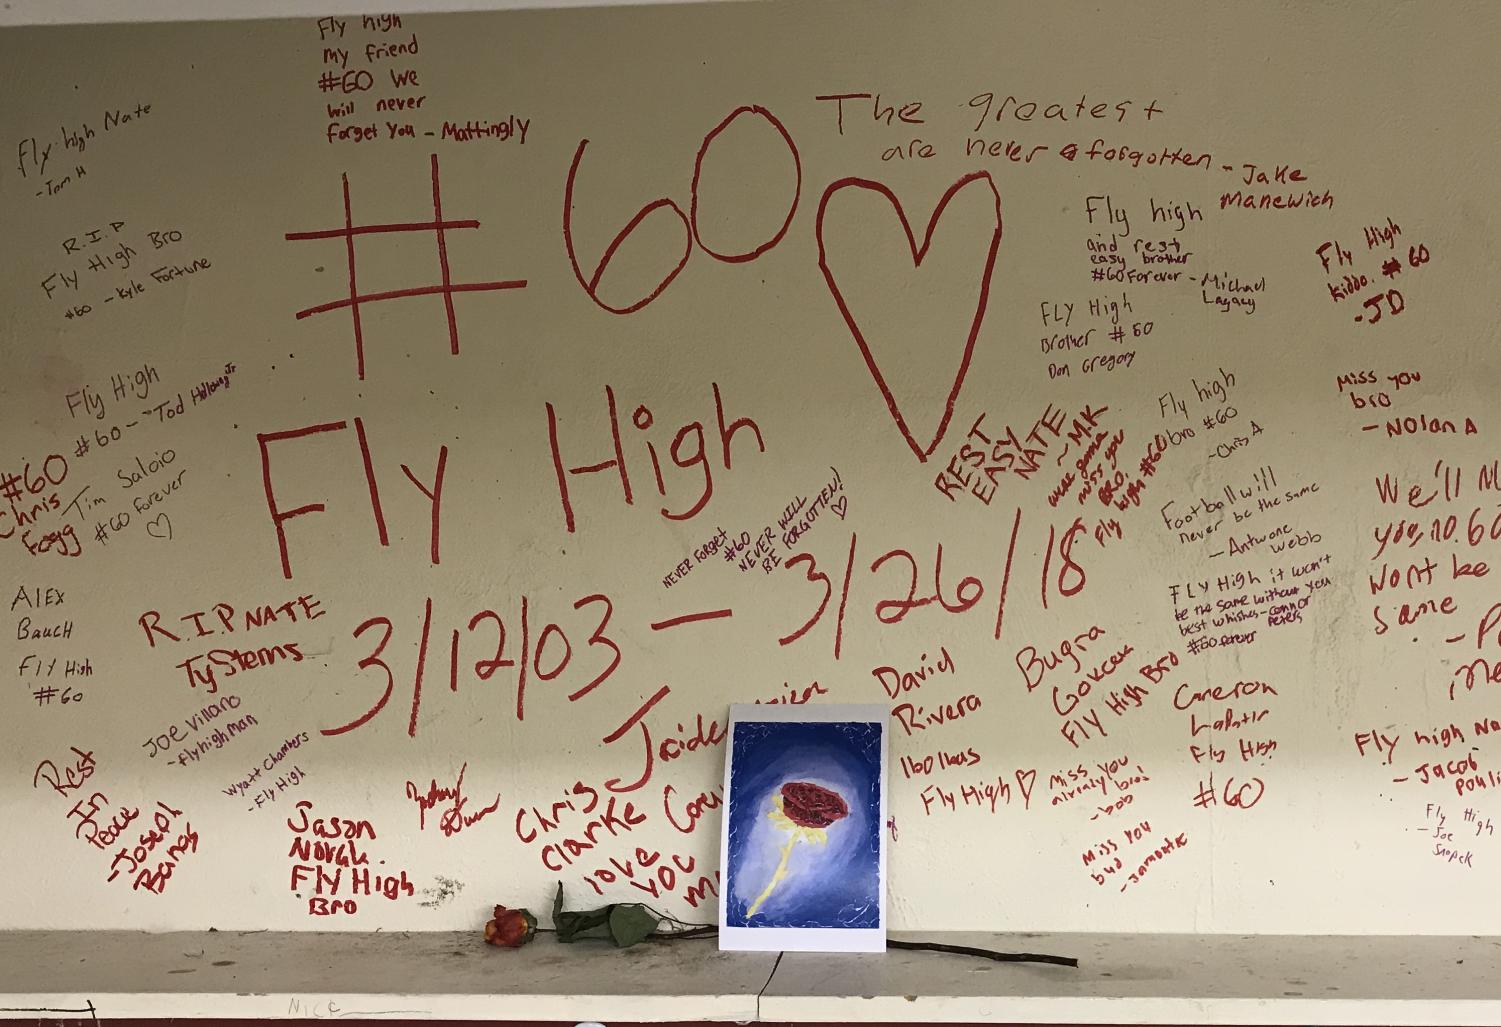 Fly high
my friend
#60 We
will never
forget You - Mattingly
Fly high Nate
- Tom H
R.I.P
Fly High Bro
#60 - Kyle Fortune
#60
The greatest
are never forgotten - Jake
Manewich
Fly high
and rest
easy brother
#60 Forever - Michael
Lagacy
FLY High
Brother #60
Don Gregory
Fly High
kiddo. #60
- JD
Fly High
#60 - Tod Holloway Jr
#60
Chris
Fogg
Tim Saloio
#60 Forever
Fly High
REST
EASY
NATE
~ M.K
were gonna
miss you
BRO.
Fly high #60
Fly high
bro #60
- Chris A
Miss you
bro
- Nolan A
NEVER FORGET
#60
NEVER WILL
BE FORGOTTEN!
Football will
never be the same
- Antwone
Webb
We'll
you, no. 60
Wont be
Same
3/12/03 — 3/26/18
FLY High it won't
be the same without you
best whishes - Connor
Peters
#60 forever
Alex
Bauch
Fly High
#60
R.I.P NATE
Ty Sterns
Joe Villano
- fly high man
Wyatt Chambers
- Fly High
Rest
In
Peace
- Joseph
Banas
Jason
Novak.
Fly High
Bro
Chris
Clarke
love
you
David
Rivera
Fly High
Bugra
Gokcek
Fly High Bro
Miss You
already bro!
- bob
Miss You
bud
Cameron
Fly High
#60
Fly high
- Jacob
Fly High
- Joe
NICK